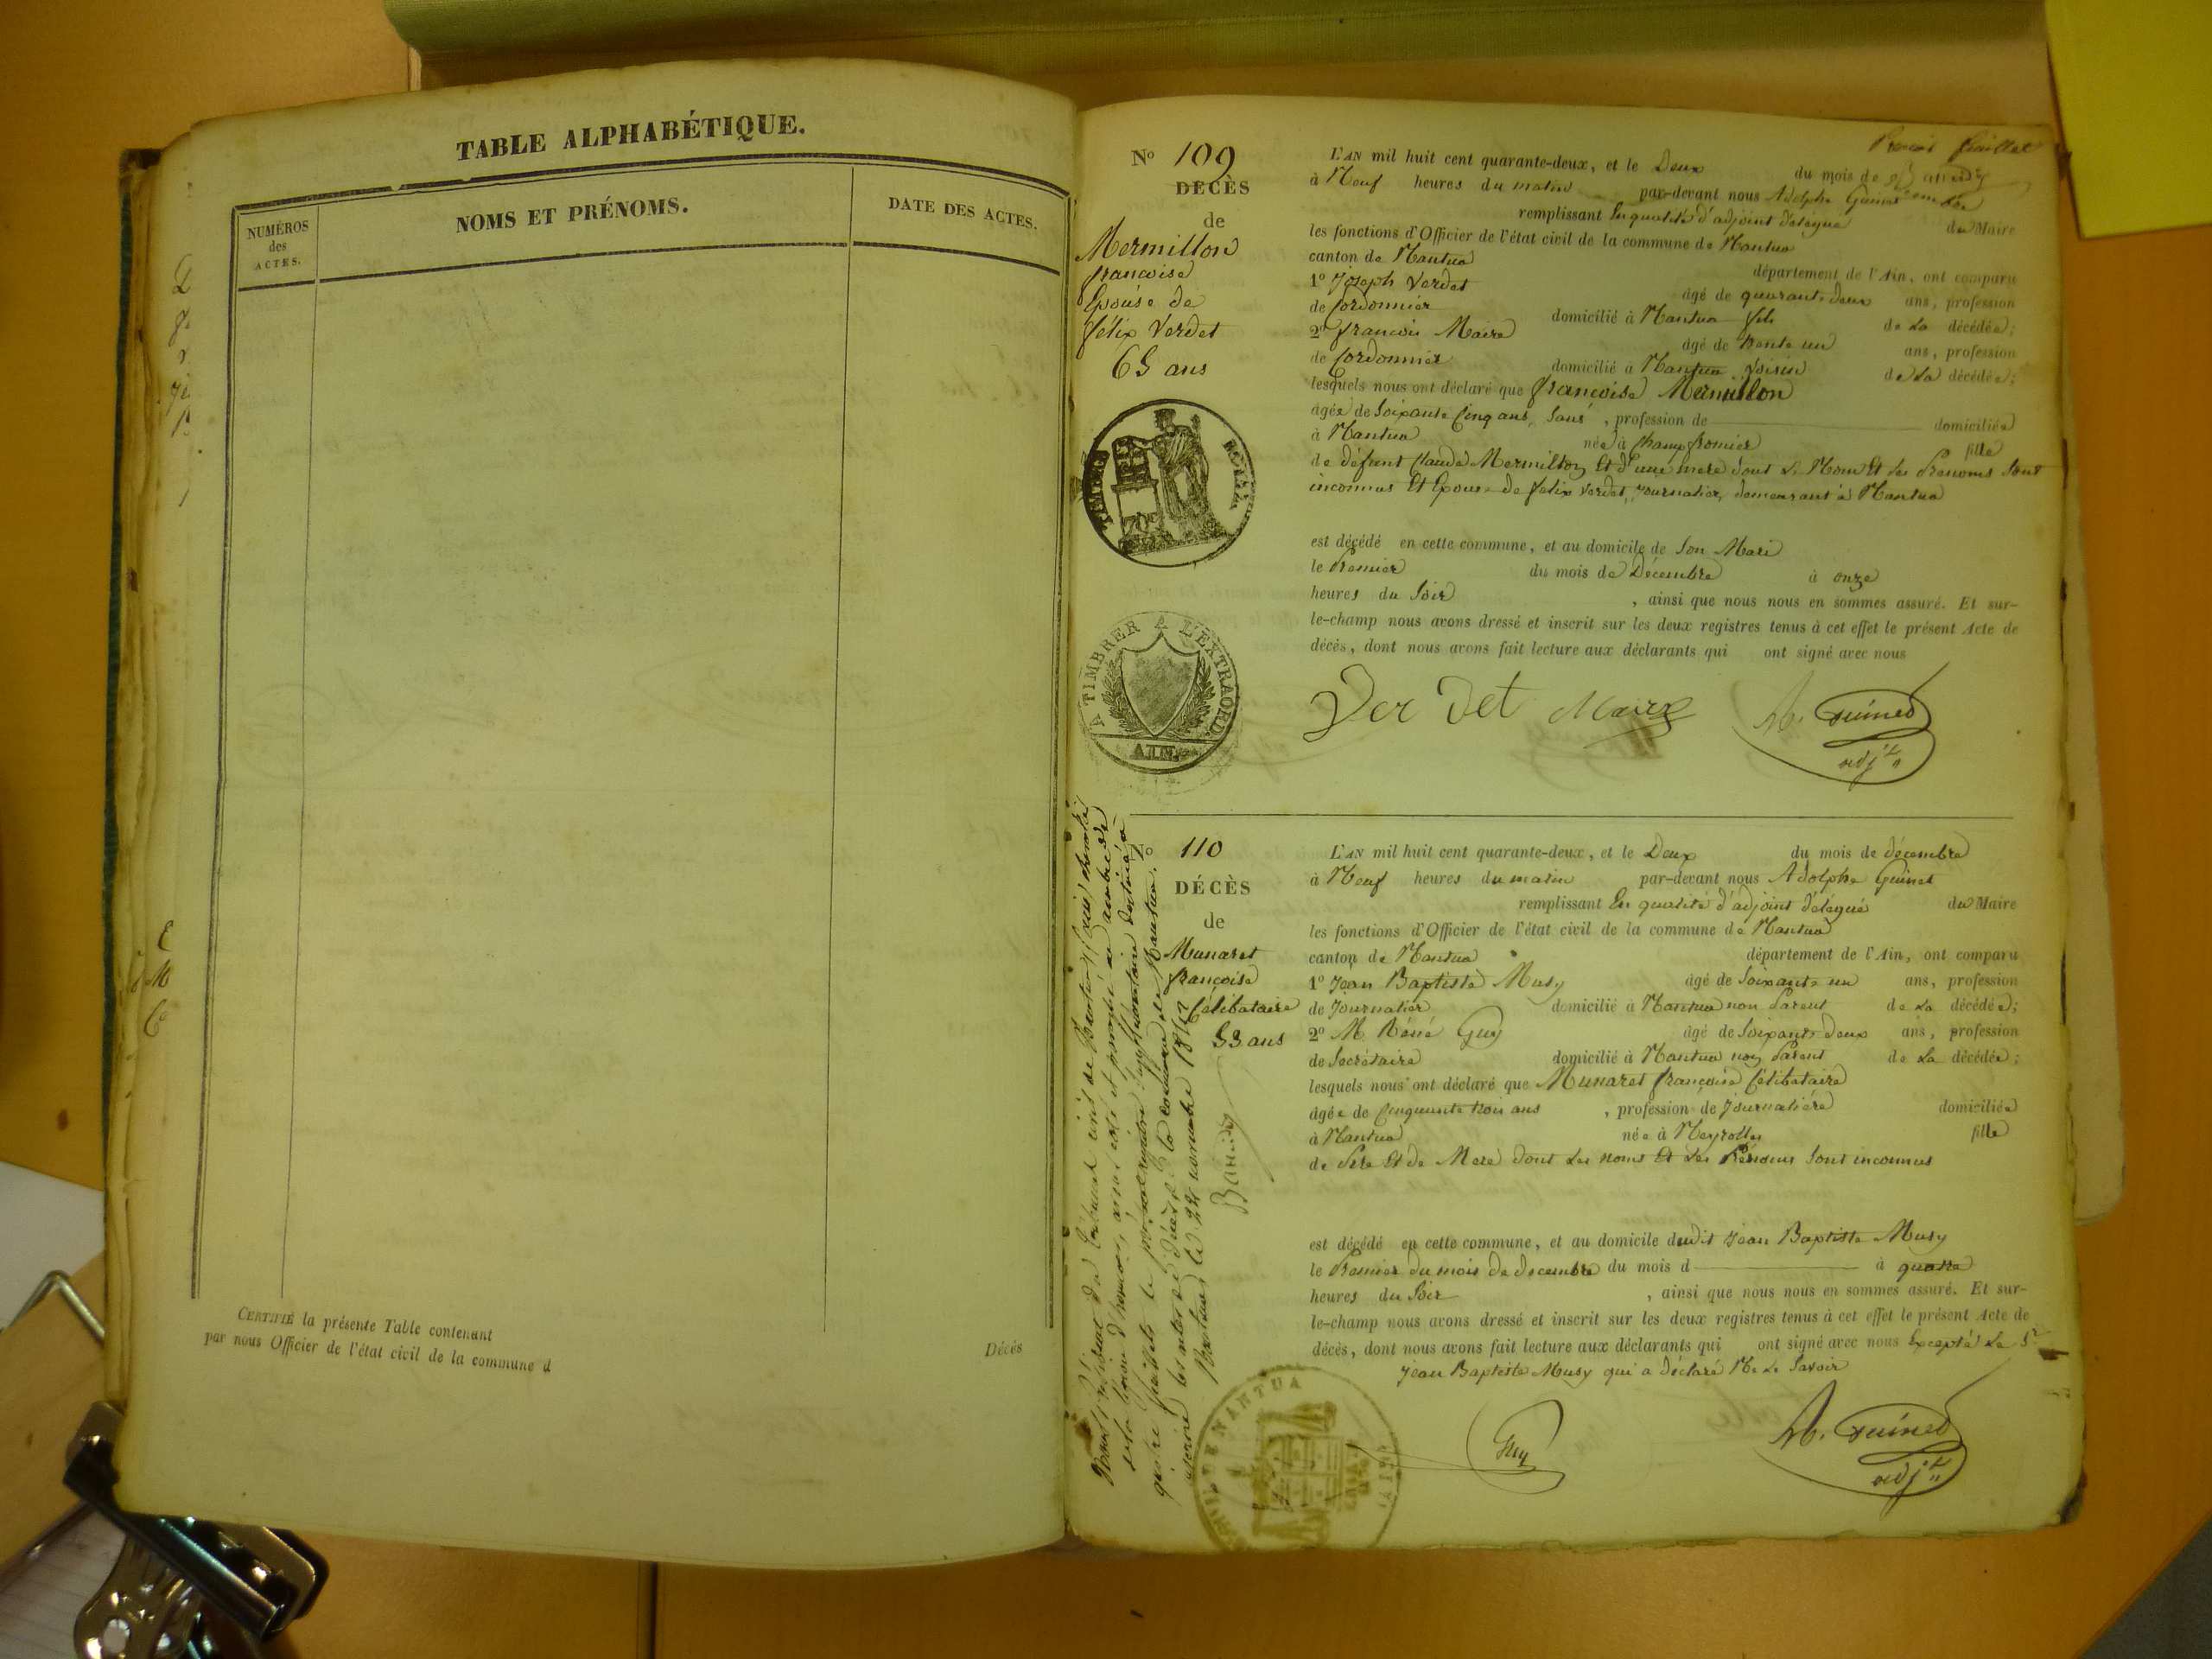 TABLE ALPHABÉTIQUE.
NUMÉROS
des
ACTES.
NOMS ET PRÉNOMS.
DATE DES ACTES.
CERTIFIÉ la présente Table contenant
Décès
par nous Officier de l'état civil de la commune d
feuillet
No 109
DÉCÈS
de
Mermillon
françoise
Epouse de
félix Verdet
65 ans
TIMBRE ROYAL
A TIMBRER A L'EXTRAORD.
AIN
L'AN mil huit cent quarante-deux, et le Deux du mois de
à Neuf heures du matin par-devant nous Adolphe Guinet
remplissant En qualité d'adjoint délégué du Maire
les fonctions d'Officier de l'état civil de la commune de Nantua
canton de Nantua département de l'Ain, ont comparu
1o Joseph Verdet âgé de quarante deux ans, profession
de Cordonnier domicilié à Nantua fils de La décédée;
2o françois Maire âgé de trente un ans, profession
de Cordonnier domicilié à Nantua Voisin de La décédée;
lesquels nous ont déclaré que françoise Mermillon
âgée de Soixante Cinq ans, Sans , profession de domiciliée
à Nantua née à Champfromier fille
de défunt Claude Mermillon Et d'une mere dont Le Nom Et Les Prenoms Sont
inconnus Et Epouse de félix Verdet, Journalier, demeurant à Nantua
est décédé en cette commune, et au domicile de Son Mari
le Premier du mois de Décembre à onze
heures du Soir , ainsi que nous nous en sommes assuré. Et sur-
le-champ nous avons dressé et inscrit sur les deux registres tenus à cet effet le présent Acte de
décès, dont nous avons fait lecture aux déclarants qui ont signé avec nous
Verdet Maire A. Guinet
adjt
No 110
DÉCÈS
de
Munaret
françoise
Célibataire
53 ans
L'AN mil huit cent quarante-deux, et le Deux du mois de décembre
à Neuf heures du matin par-devant nous Adolphe Guinet
remplissant En qualité d'adjoint délégué du Maire
les fonctions d'Officier de l'état civil de la commune de Nantua
canton de Nantua département de l'Ain, ont comparu
1o Jean Baptiste Musy âgé de Soixante un ans, profession
de Journalier domicilié à Nantua non Parent de La décédée;
2o M. Réné Guy âgé de Soixante deux ans, profession
de Secrétaire domicilié à Nantua non Parent de La décédée;
lesquels nous ont déclaré que Munaret françoise Célibataire
âgée de Cinquante trois ans , profession de Journalière domiciliée
à Nantua née à Neyrolles fille
de Pere Et de Mere dont Les noms Et Les Prénoms Sont inconnus
est décédé en cette commune, et au domicile dudit Jean Baptiste Musy
le Premier du mois de decembre du mois d à quatre
heures du Soir , ainsi que nous nous en sommes assuré. Et sur-
le-champ nous avons dressé et inscrit sur les deux registres tenus à cet effet le présent Acte de
décès, dont nous avons fait lecture aux déclarants qui ont signé avec nous Excepté Le Sr
Jean Baptiste Musy qui a déclaré Ne Le Savoir
Guy A. Guinet
adjt
président du tribunal civil de Nantua
la commune de Nantua.
Nantua le 28 novembre 1842
DE NANTUA